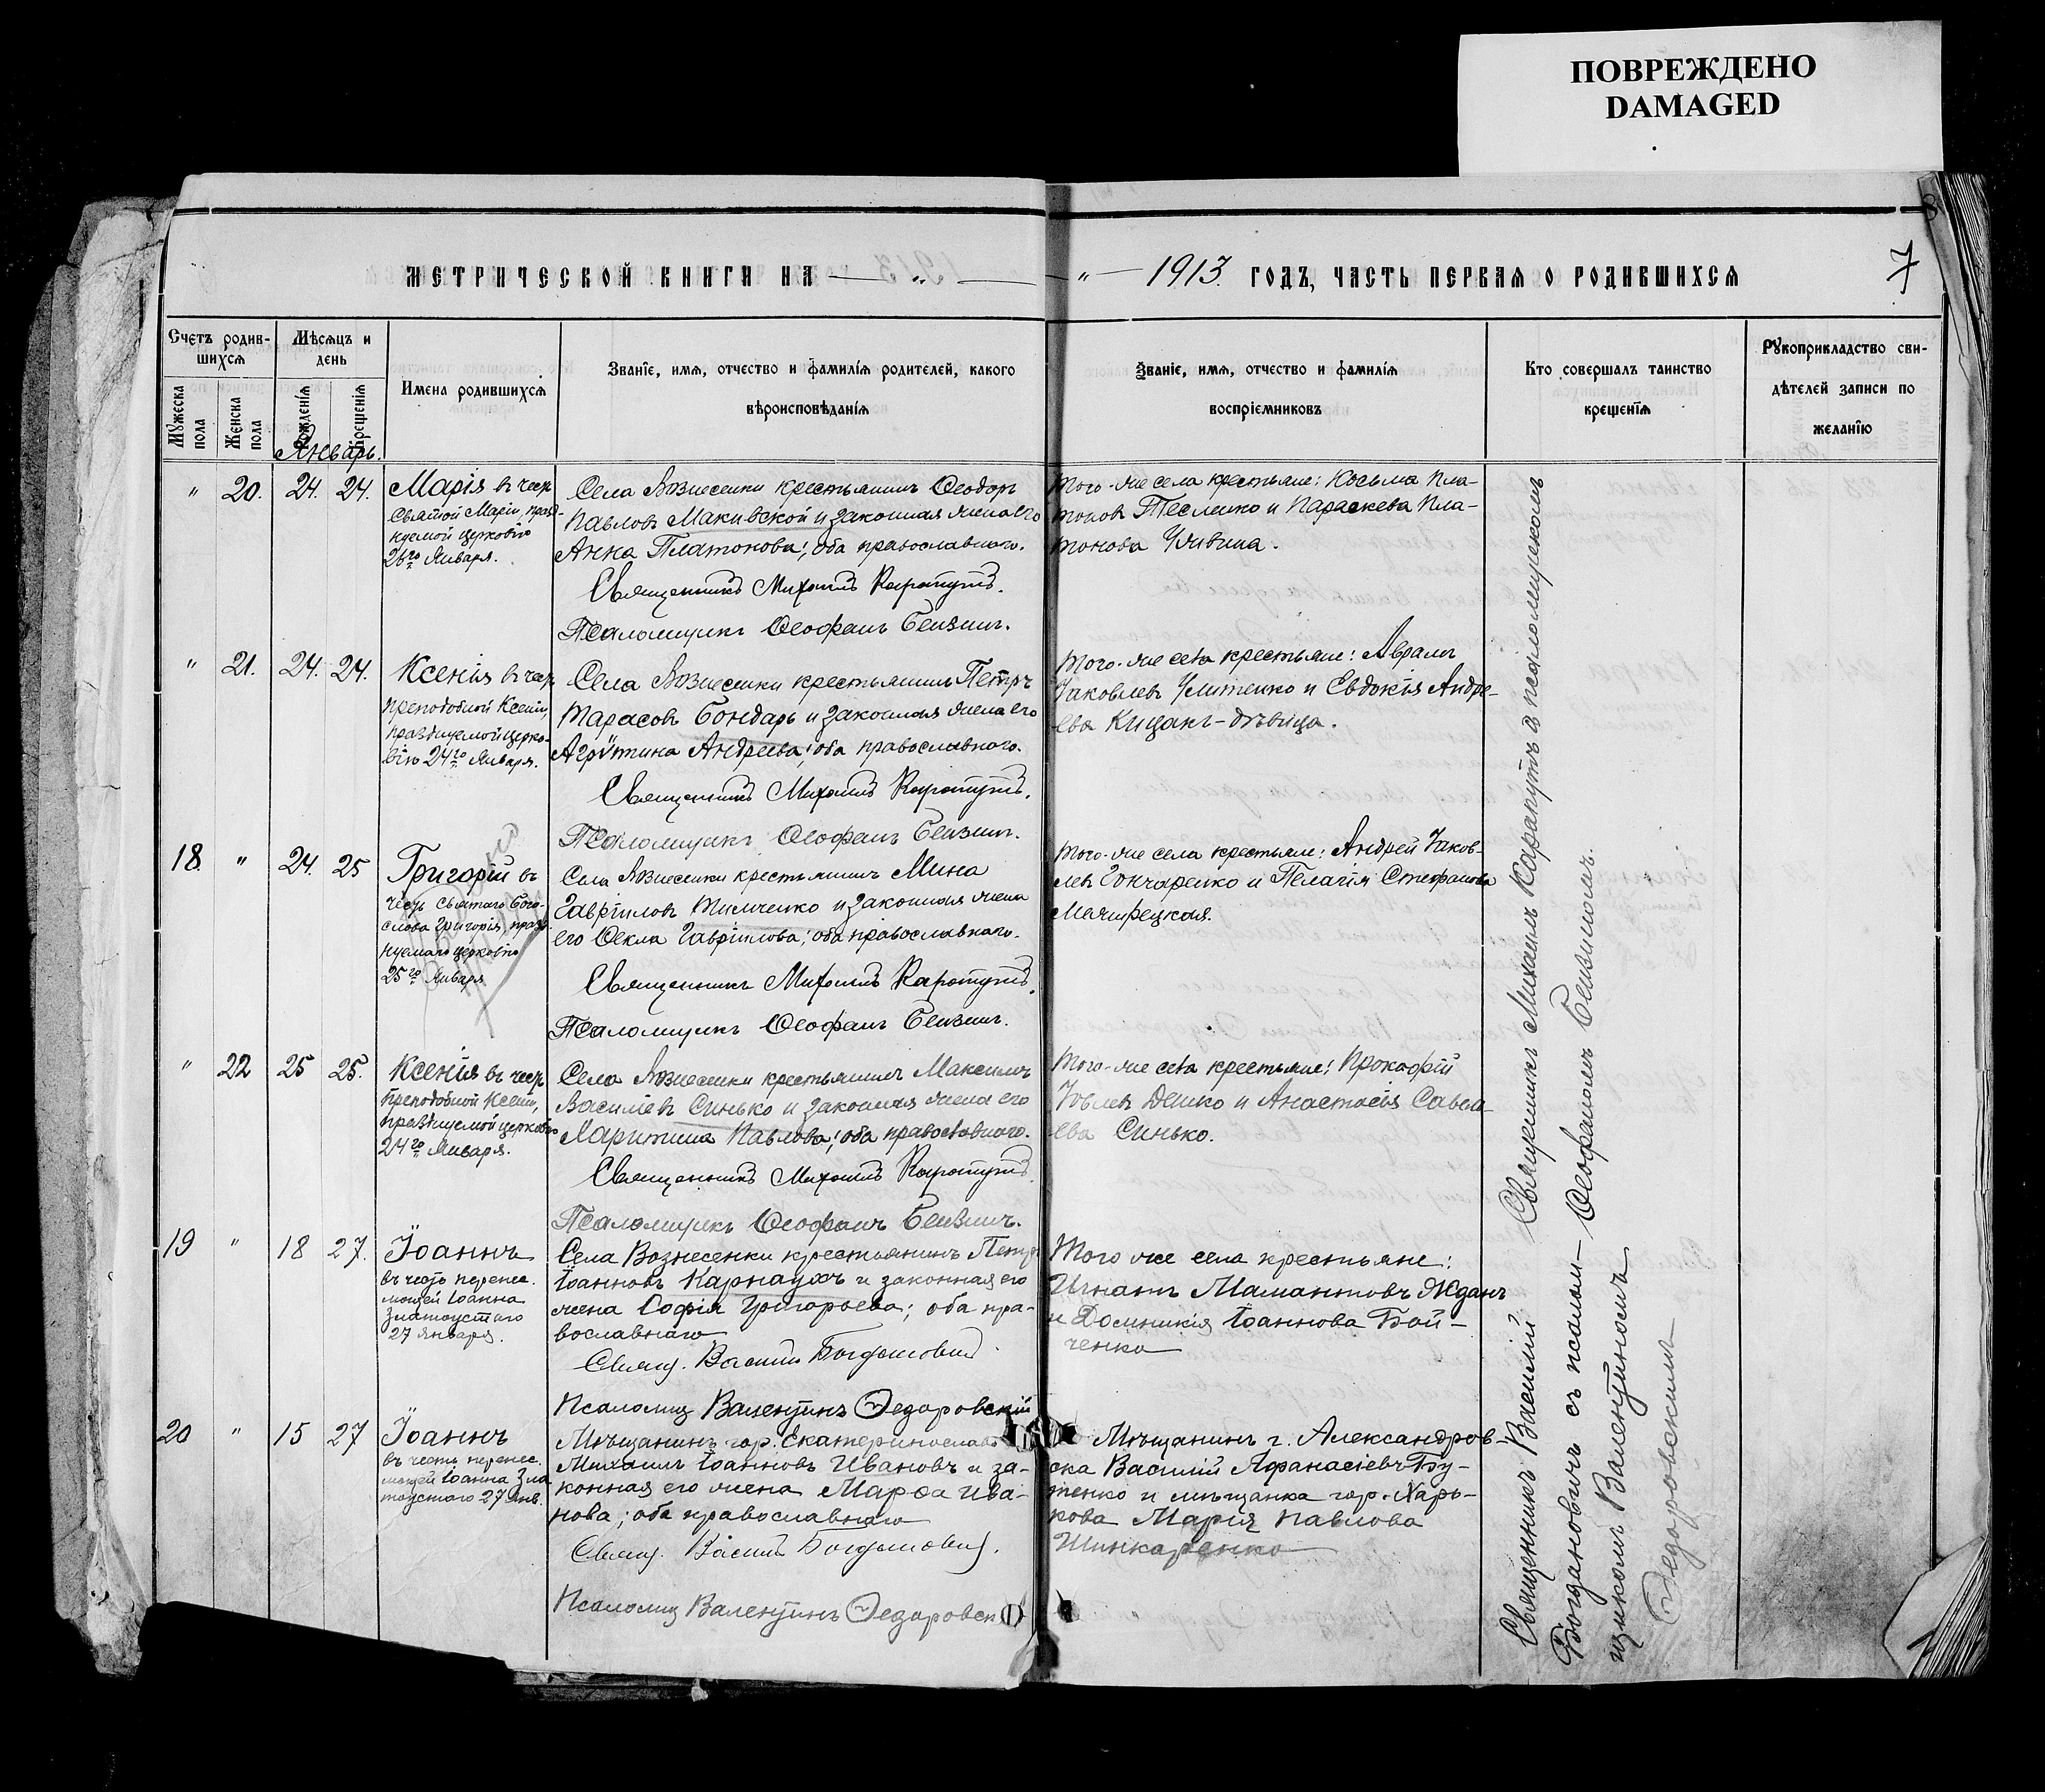 ПОВРЕЖДЕНО
DAMAGED
8
МЕТРИЧЕСКОЙ КНИГИ НА — „ —
— „ — 1913 ГОДЪ, ЧАСТЬ ПЕРВАЯ О РОДИВШИХСЯ
7
Счетъ родив-
шихся
Мѣсяцъ и
день
Мужеска пола
Женска пола
Рожденія
Крещенія
Имена родившихся
Званіе, имя, отчество и фамилія родителей, какого
вѣроисповѣданія
Званіе, имя, отчество и фамилія
воспріемниковъ
Кто совершалъ таинство
крещенія
Рукоприкладство сви-
дѣтелей записи по
желанію
Январь.
„ 20. 24. 24.
Марія въ честь
Святой Маріи, празд-
нуемой церковію
26го Января.
Села Вознесенки крестьянинъ Ѳеодоръ
Павловъ Макивской и законная жена его
Анна Платонова; оба православнаго.
Священникъ Михаилъ Карапутъ.
Псаломщикъ Ѳеофанъ Бензинъ.
Того-же села крестьяне: Косьма Пла-
тоновъ Тесленко и Параскева Пла-
тонова
„ 21. 24. 24.
Ксенія въ честь
преподобной Ксеніи,
празднуемой церко-
вію 24го Января.
Села Вознесенки крестьянинъ Петръ
Тарасовъ Бондарь и законная жена его
Агрѵпина Андреева; оба православнаго.
Священникъ Михаилъ Карапутъ.
Псаломщикъ Ѳеофанъ Бензинъ.
Того-же села крестьяне: Аврамъ
Іаковлевъ Улитенко и Евдокія Андре-
ева Кицакъ-дѣвица.
18. „ 24. 25
Григорій въ
честь святаго Бого-
слова Григорія, празд-
нуемаго церковію
25го Января
Села Вознесенки крестьянинъ Мина
Гавріиловъ Тимченко и законная жена
его Ѳекла Гавріилова; оба православнаго.
Священникъ Михаилъ Карапутъ.
Псаломщикъ Ѳеофанъ Бензинъ.
Того-же села крестьяне: Андрей Іаков-
левъ Гончаренко и Пелагія Стефанова
„ 22 25 25.
Ксенія въ честь
преподобной Ксеніи,
празднуемой церковію
24го Января.
Села Вознесенки крестьянинъ Максимъ
Василіевъ Синько и законная жена его
Харитина Павлова; оба православнаго.
Священникъ Михаилъ Карапутъ.
Псаломщикъ Ѳеофанъ Бензинъ.
Того-же села крестьяне: Прокофій
Іовлевъ Дешко и Анастасія Савел-
ева Синько.
19 „ 18 27.
Іоаннъ
въ честь перенес.
мощей Іоанна
Златоустаго
27 Января.
Села Вознесенки крестьянинъ Петръ
Іоанновъ Карнаухъ и законная его
жена Софія Григорьева; оба пра-
вославнаго
Свящ. Василій Богдановичъ.
Псаломщ Валентинъ Ѳедоровскій
Того же села крестьяне:
Игнатъ Мамантовъ Жданъ
и Домникія Іоаннова Бой-
ченко
20 „ 15 27
Іоаннъ
въ честь перенес.
мощей Іоанна Зла
тоустаго 27 Янв.
Мѣщанинъ гор. Екатеринослава
Михаилъ Іоанновъ Ивановъ и за-
конная его жена Марѳа Ива-
нова; оба православнаго
Свящ. Василій Богдановичъ.
Псаломщ Валентинъ Ѳедоровскій
Мѣщанинъ г. Александров-
ска Василій Афанасіевъ Бу-
тенко и мѣщанка гор. Харь-
кова Марія Павлова
Шинкаренко
Священникъ Михаилъ Карапутъ съ псаломщикомъ
Ѳеофаномъ Бензиномъ.
Священникъ Василій
Богдановичъ съ псалом-
щикомъ Валентиномъ
Ѳедоровскимъ